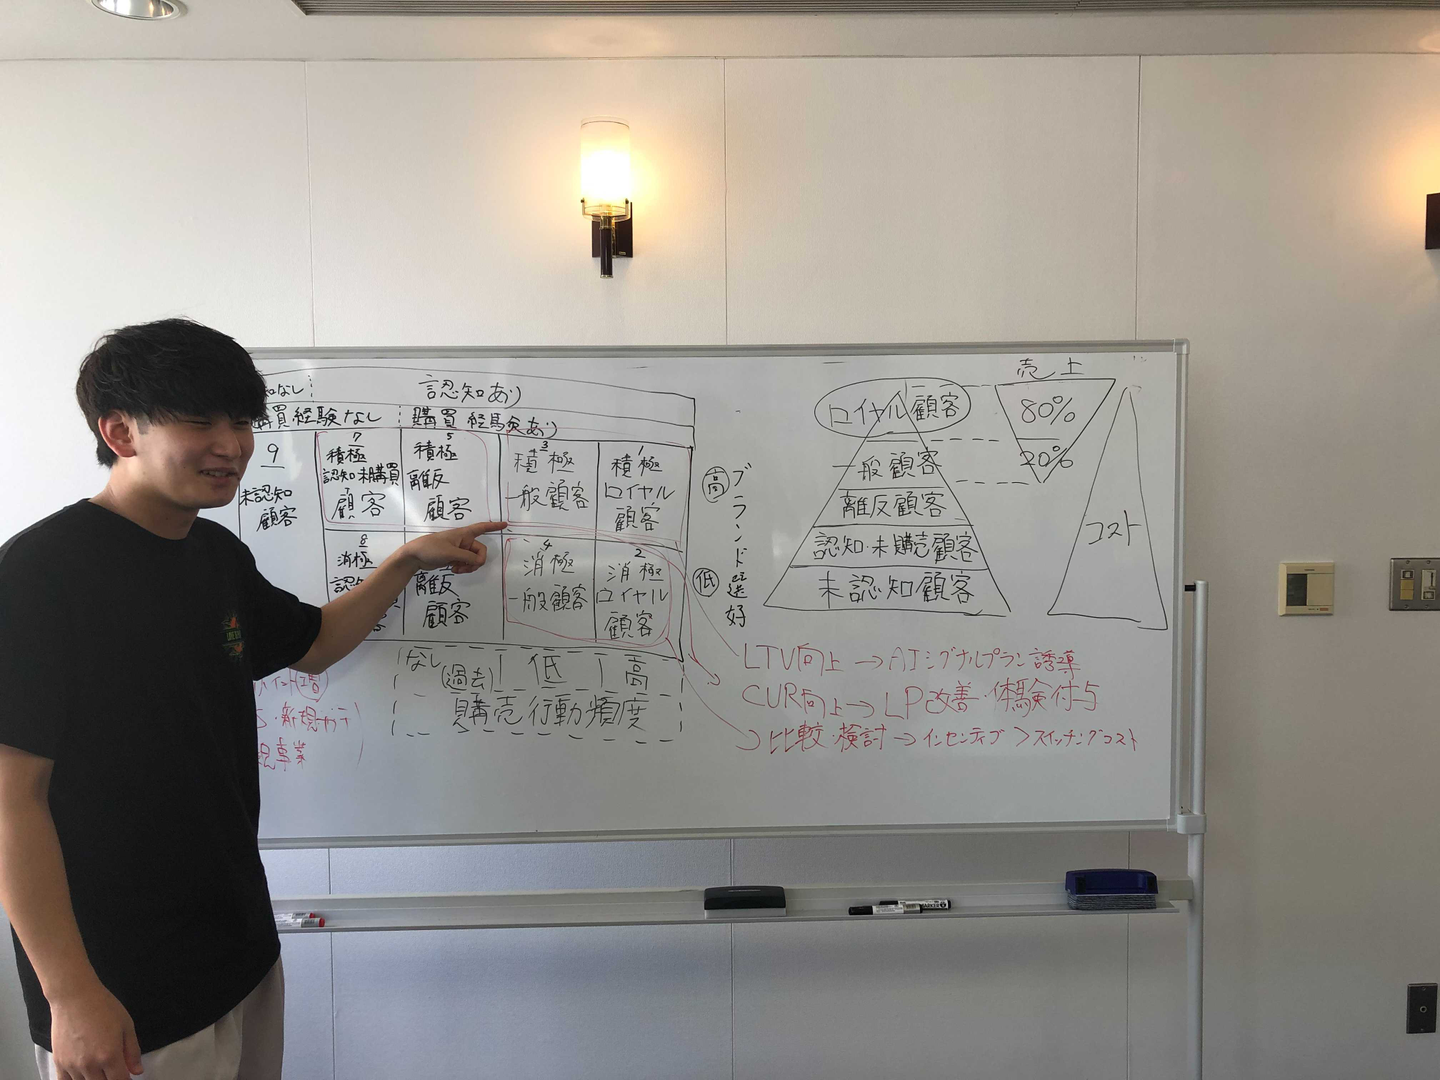 知なし
認知あり
購買経験なし
購買経験あり
9
未認知
顧客
7
積極
認知・未購買
顧客
5
積極
離反
顧客
3
積極
一般顧客
1
積極
ロイヤル
顧客
8
消極
認知
離反
顧客
4
消極
一般顧客
2
消極
ロイヤル
顧客
高
低
ブランド選好
なし
過去
低
高
購売行動頻度
高
・新規
規事業
ロイヤル顧客
一般顧客
離反顧客
認知・未購売顧客
未認知顧客
売上
80%
20%
コスト
LTV向上→AIシグナルプラン誘導
CUR向上→LP改善・体験付与
比較・検討→インセンティブ>スイッチングコスト